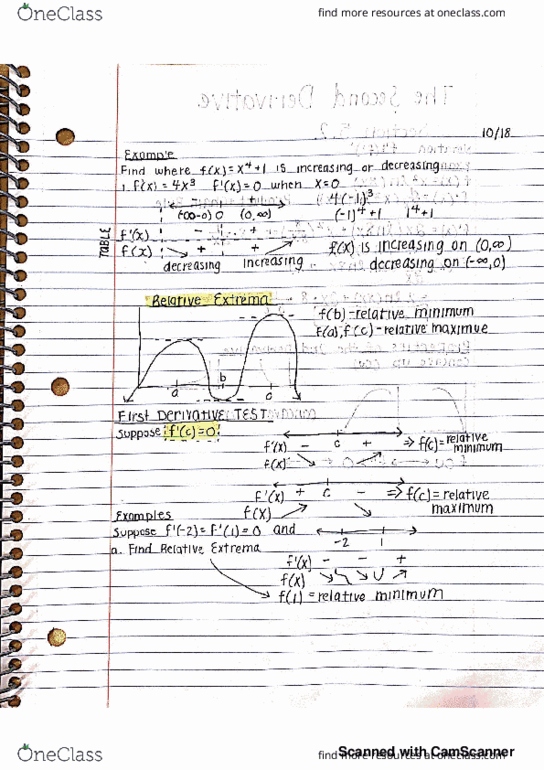 OneClass
find more resources at oneclass.com
The Second Derivative
10/18
Example
Find where f(x)=x⁴+1 is increasing or decreasing
1. f'(x) = 4x³ f'(x)=0 when x=0
(-∞-0) 0 (0,∞)
4(-1)³
(-1)⁴+1 1⁴+1
TABLE
f'(x) - +
f(x) + +
decreasing increasing
f(x) is increasing on (0,∞)
decreasing on (-∞,0)
Relative Extrema
f(b)-relative minimum
f(a),f(c)-relative maximue
a b c
First Derivative TEST
Suppose f'(c)=0
c
f'(x) - + ⇒ f(c)=relative minimum
f(x)
c
f'(x) + - ⇒ f(c)=relative maximum
f(x)
Examples
Suppose f'(-2)=f'(1)=0 and
-2 1
a. Find Relative Extrema
f'(x) - - +
f(x)
f(1)=relative minimum
OneClass
find more resources at oneclass.com
Scanned with CamScanner